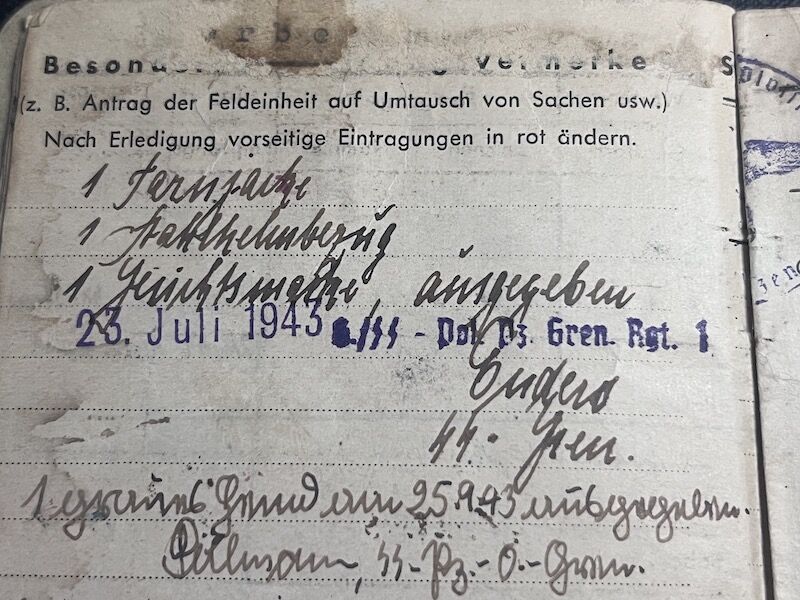 Besonde Vermerke
(z. B. Antrag der Feldeinheit auf Umtausch von Sachen usw.)
Nach Erledigung vorseitige Eintragungen in rot ändern.
1 Tarnjacke
1 Stahlhelmbezug
1 Gesichtsmaske, ausgegeben
23. Juli 1943 6./SS - Pol. Pz. Gren. Rgt. 1
Enders
SS-Gren.
1 graues Hemd am 25.9.43 ausgegeben.
SS-Pz.-O.-Gren.